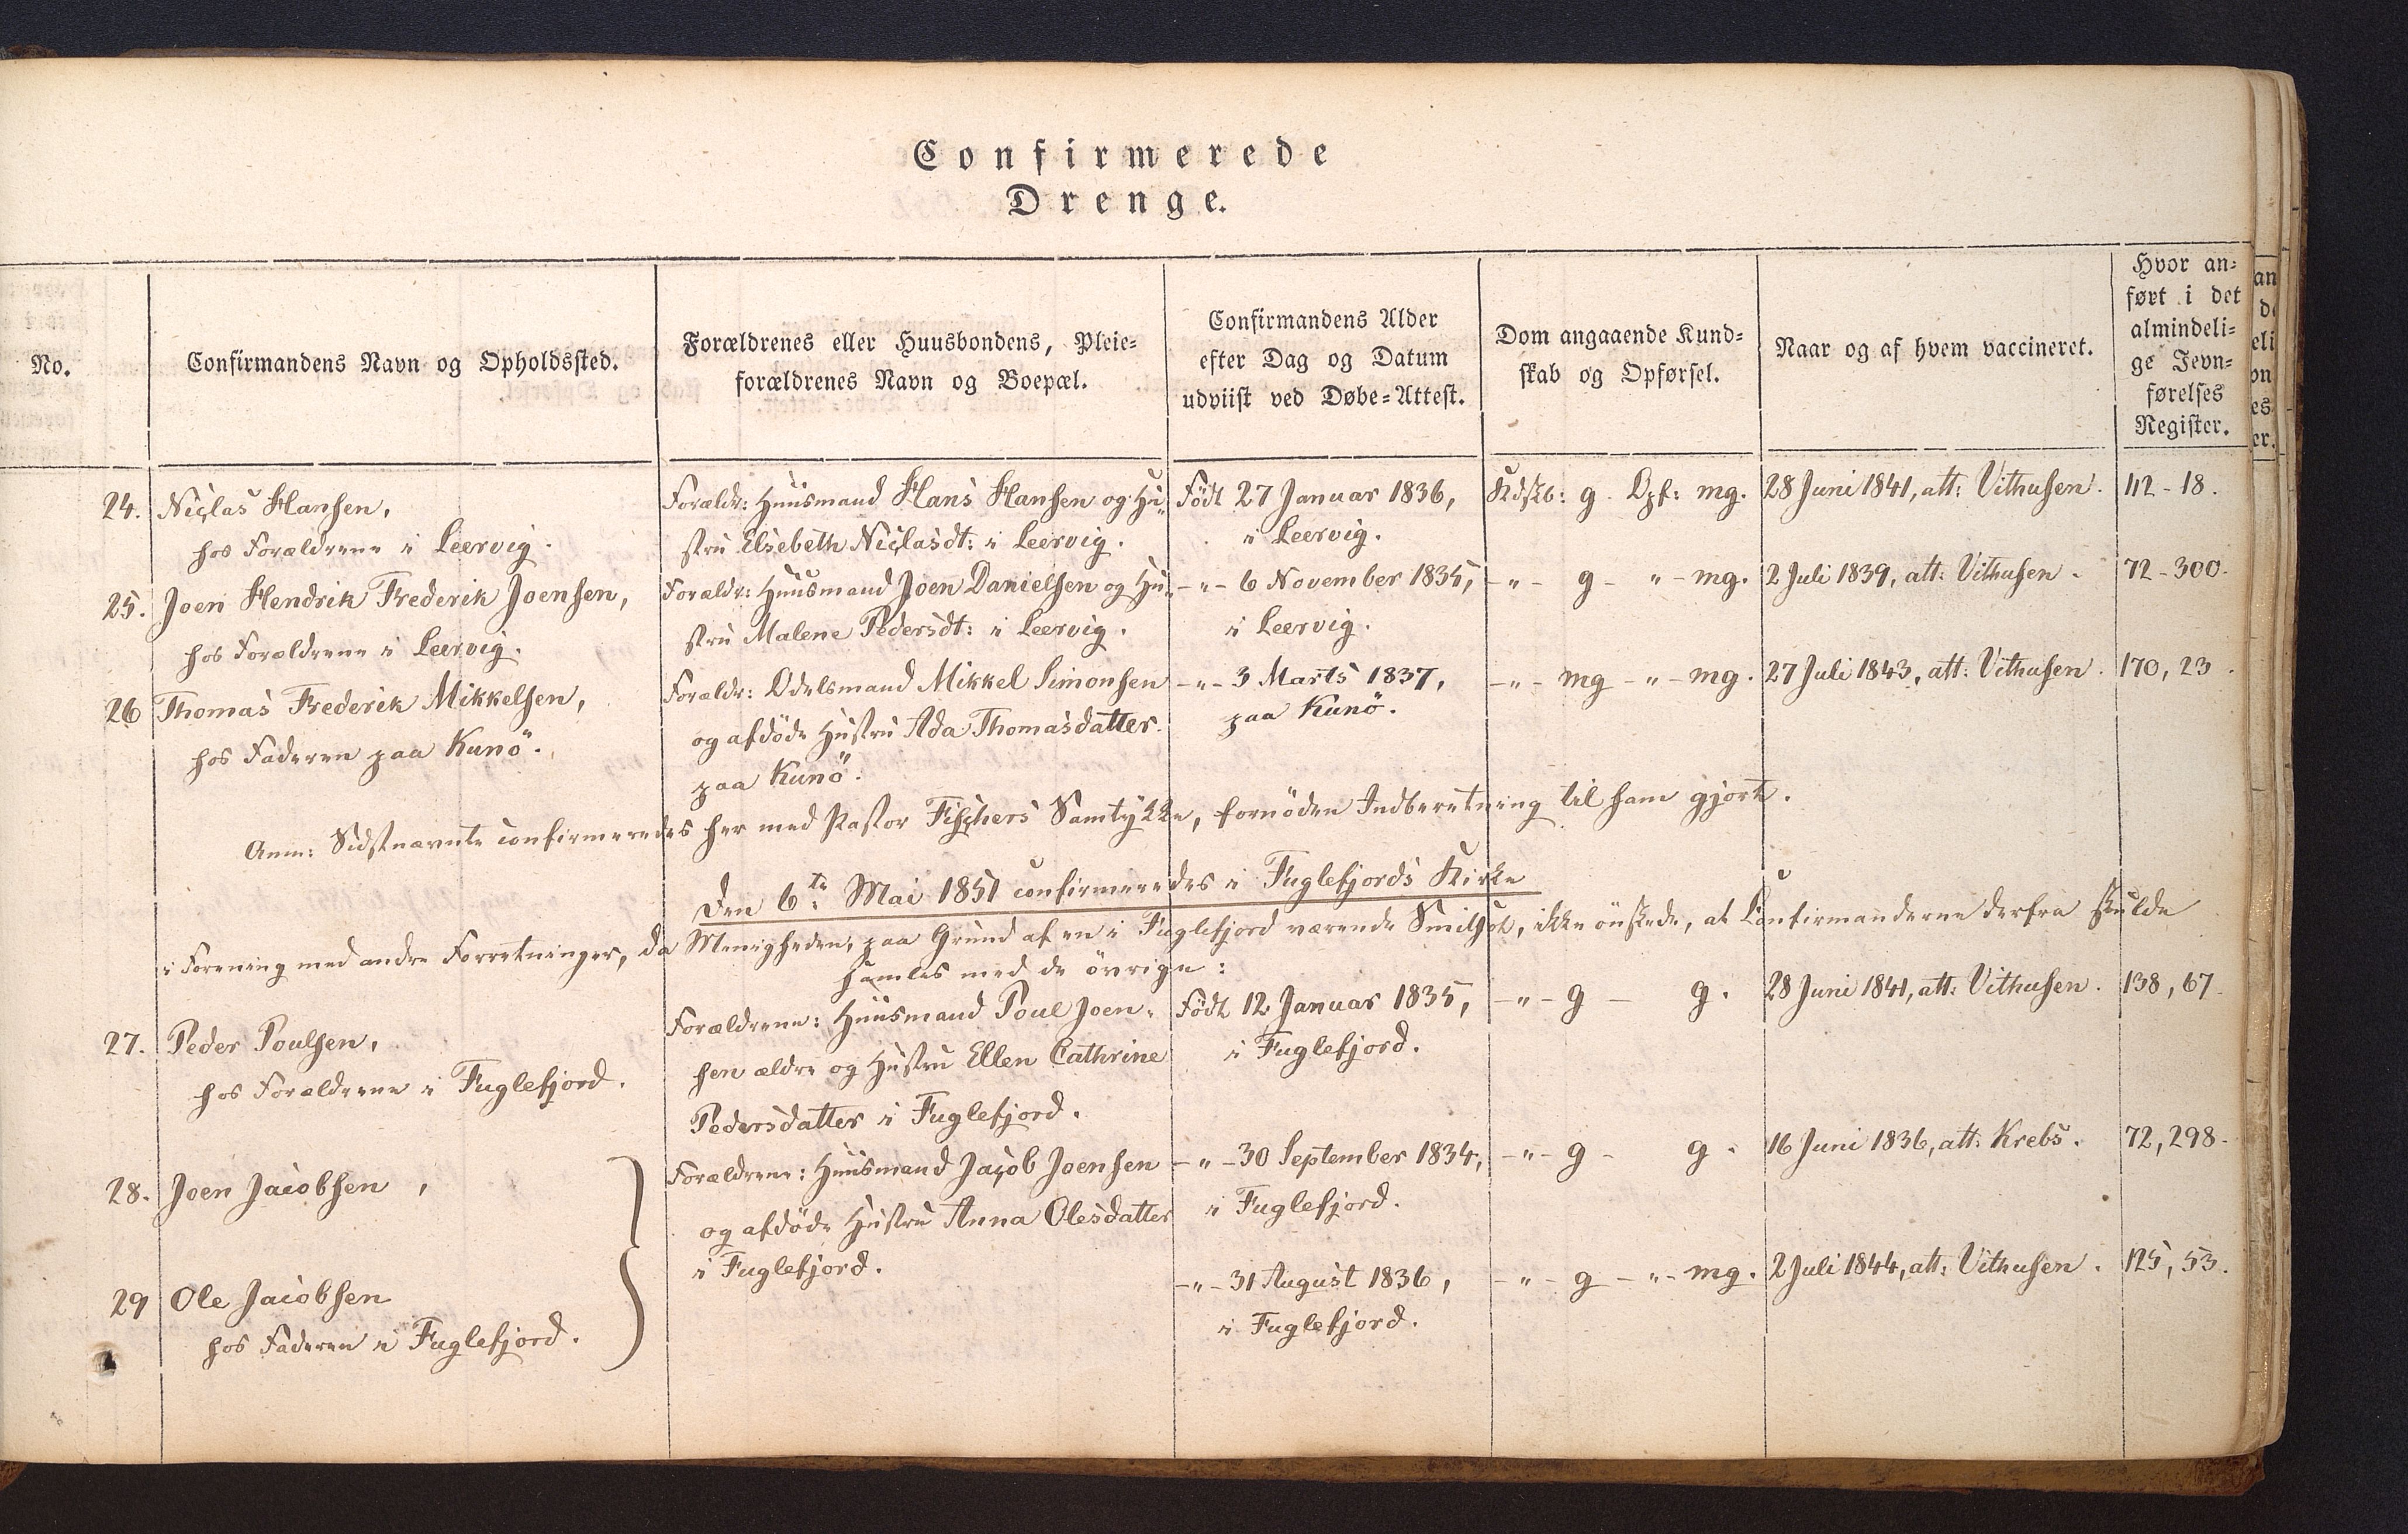 Confirmerede
Drenge.
No.
Confirmandens Navn og Opholdssted.
Forældrenes eller Huusbondens, Pleie-
forældrenes Navn og Boepæl.
Confirmandens Alder
efter Dag og Datum
udviist ved Døbe-Attest.
Dom angaaende Kund-
skab og Opførsel.
Naar og af hvem vaccineret.
Hvor an-
ført i det
almindeli-
ge Jevn-
førelses
Register.
24. Niclas Hansen,
hos Forældrene i Leervig.
Forældr: Huusmand Hans Hansen og Hu-
stru Elsebeth Niclasdt: i Leervig.
Født 27 Januar 1836,
i Leervig.
Kdskb: g. Opf: mg.
28 Juni 1841, att: Vithusen.
112-18.
25. Joen Hendrik Frederik Joensen,
hos Forældrene i Leervig.
Forældr: Huusmand Joen Danielsen og Hu-
stru Malene Pedersdt: i Leervig.
-"- 6 November 1835,
i Leervig.
-"- g - "- mg.
2 Juli 1839, att: Vithusen.
72-300.
26 Thomas Frederik Mikkelsen,
hos Faderen paa Kunö.
Forældr: Odelsmand Mikkel Simonsen
og afdöde Hustru Ada Thomasdatter
paa Kunö.
-"- 3 Marts 1837,
paa Kunö.
-"- mg -"- mg.
27 Juli 1843, att: Vithusen.
170, 23.
Anm: Sidstnævnte confirmeredes her med Pastor Fischers Samtykke, fornöden Indberetning til ham gjort.
Den 6te Mai 1851 confirmeredes i Fuglefjords Kirke
i Forening med andre Forretninger, da Menigheden, paa Grund af en i Fuglefjord værende Smitsot, ikke önskede, at Confirmanderne derfra skulde
samles med de övrige:
27. Peder Poulsen,
hos Forældrene i Fuglefjord.
Forældrene: Huusmand Poul Joen-
sen ældre og Hustru Ellen Cathrine
Pedersdatter i Fuglefjord.
Födt 12 Januar 1835,
i Fuglefjord.
-"- g - g.
28 Juni 1841, att: Vithusen.
138, 67.
28. Joen Jacobsen,
Forældrene: Huusmand Jacob Joensen
og afdöde Hustru Anna Olesdatter
i Fuglefjord.
-"- 30 September 1834,
i Fuglefjord.
-"- g - g.
16 Juni 1836, att: Krebs.
72, 298.
29 Ole Jacobsen
hos Faderen i Fuglefjord.
-"- 31 August 1836,
i Fuglefjord.
-"- g -"- mg.
2 Juli 1844, att: Vithusen.
125, 53.